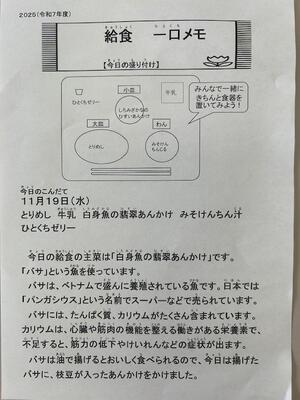 2025(令和7年度)
給食 一口メモ
【今日の盛り付け】
ひとくちゼリー
小皿
しろみざかなの
ひすいあんかけ
牛乳
みんなで一緒に
きちんと食器を
置いてみよう!
大皿
とりめし
わん
みそけん
ちんじる
今日のこんだて
11月19日(水)
とりめし 牛乳 白身魚の翡翠あんかけ みそけんちん汁
ひとくちゼリー
今日の給食の主菜は「白身魚の翡翠あんかけ」です。
「バサ」という魚を使っています。
バサは、ベトナムで盛んに養殖されている魚です。日本では
「パンガシウス」という名前でスーパーなどで売られています。
バサには、たんぱく質、カリウムがたくさん含まれています。
カリウムは、心臓や筋肉の機能を整える働きがある栄養素で、
不足すると、筋力の低下やけいれんなどの症状が出ます。
バサは油で揚げるとおいしく食べられるので、今日は揚げた
バサに、枝豆が入ったあんかけをかけました。